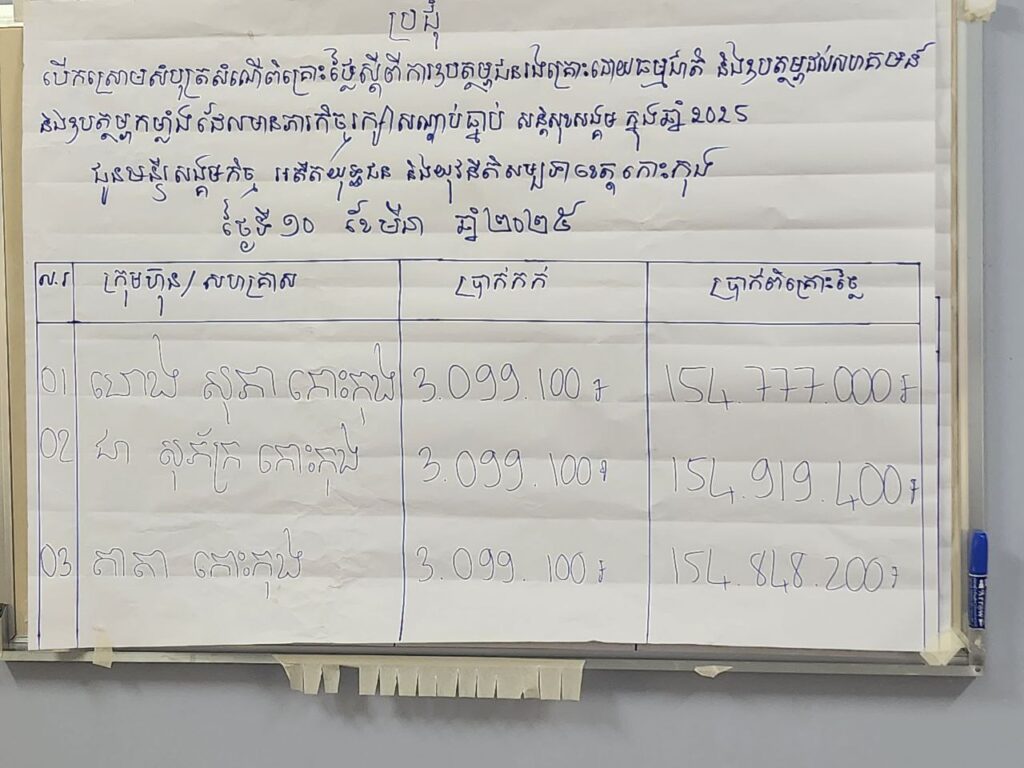 ប្រជុំ
បើកស្រោមសំបុត្រសំណើពិគ្រោះថ្លៃស្តីពីការឧបត្ថម្ភជនរងគ្រោះដោយធម្មជាតិ និងឧបត្ថម្ភដល់សហគមន៍
និងឧបត្ថម្ភកម្លាំងដែលមានភារកិច្ចរក្សាសណ្តាប់ធ្នាប់ សន្តិសុខសង្គម ក្នុងឆ្នាំ 2025
ជូនមន្ទីរសង្គមកិច្ច អតីតយុទ្ធជន និងយុវនីតិសម្បទាខេត្តកោះកុង
ថ្ងៃទី ១០ ខែ មីនា ឆ្នាំ ២០២៥
ល.រ ក្រុមហ៊ុន/សហគ្រាស ប្រាក់កក់ ប្រាក់ពិគ្រោះថ្លៃ
01 ហេង សុភា កោះកុង 3.099.100៛ 154.777.000៛
02 ជា សុភ័ក្រ កោះកុង 3.099.100៛ 154.919.400៛
03 តាតា កោះកុង 3.099.100៛ 154.848.200៛